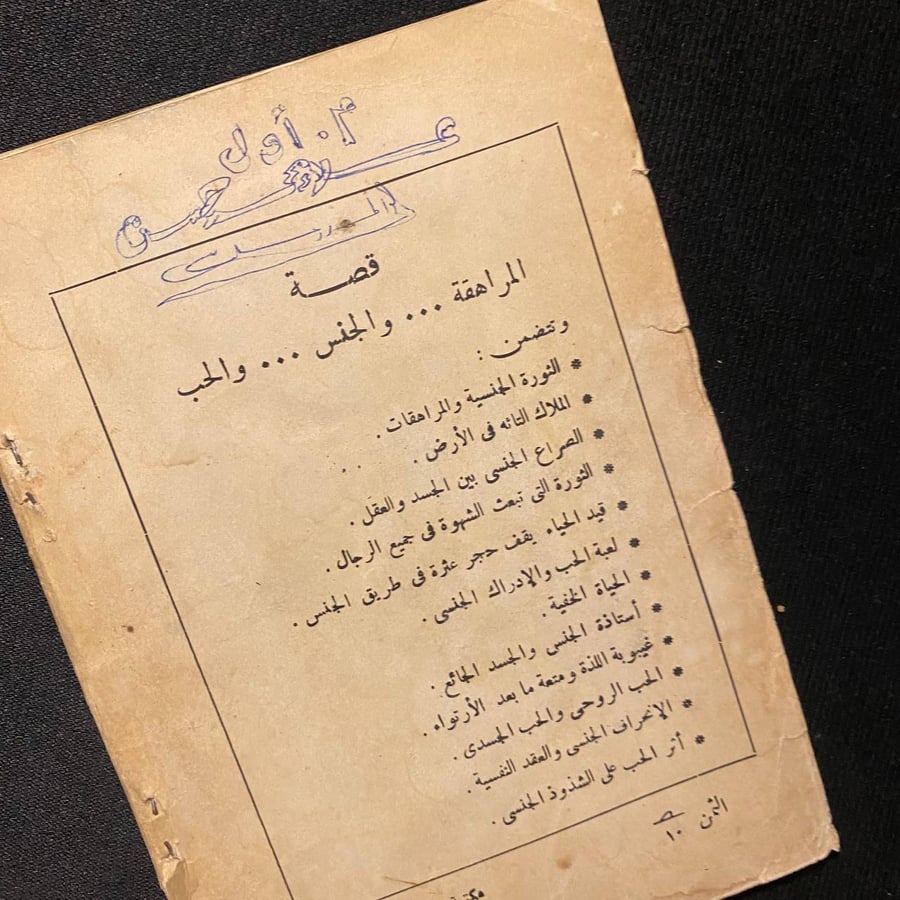 م. أول
قصة
المراهقة ... والجنس ... والحب
وتتضمن :
* الثورة الجنسية والمراهقات .
* الملاك التائه فى الأرض .
* الصراع الجنسى بين الجسد والعقل .
* الثورة التى تبعث الشهوة فى جميع الرجال .
* قيد الحياء يقف حجر عثرة فى طريق الجنس .
* لعبة الحب والإدراك الجنسى .
* الحياة الخفية .
* أستاذة الجنس والجسد الجائع .
* غيبوبة اللذة ومتعة ما بعد الأرتواء .
* الحب الروحى والحب الجسدى .
* الإنحراف الجنسى والعقد النفسية .
* أثر الحب على الشذوذ الجنسى .
الثمن ١٠